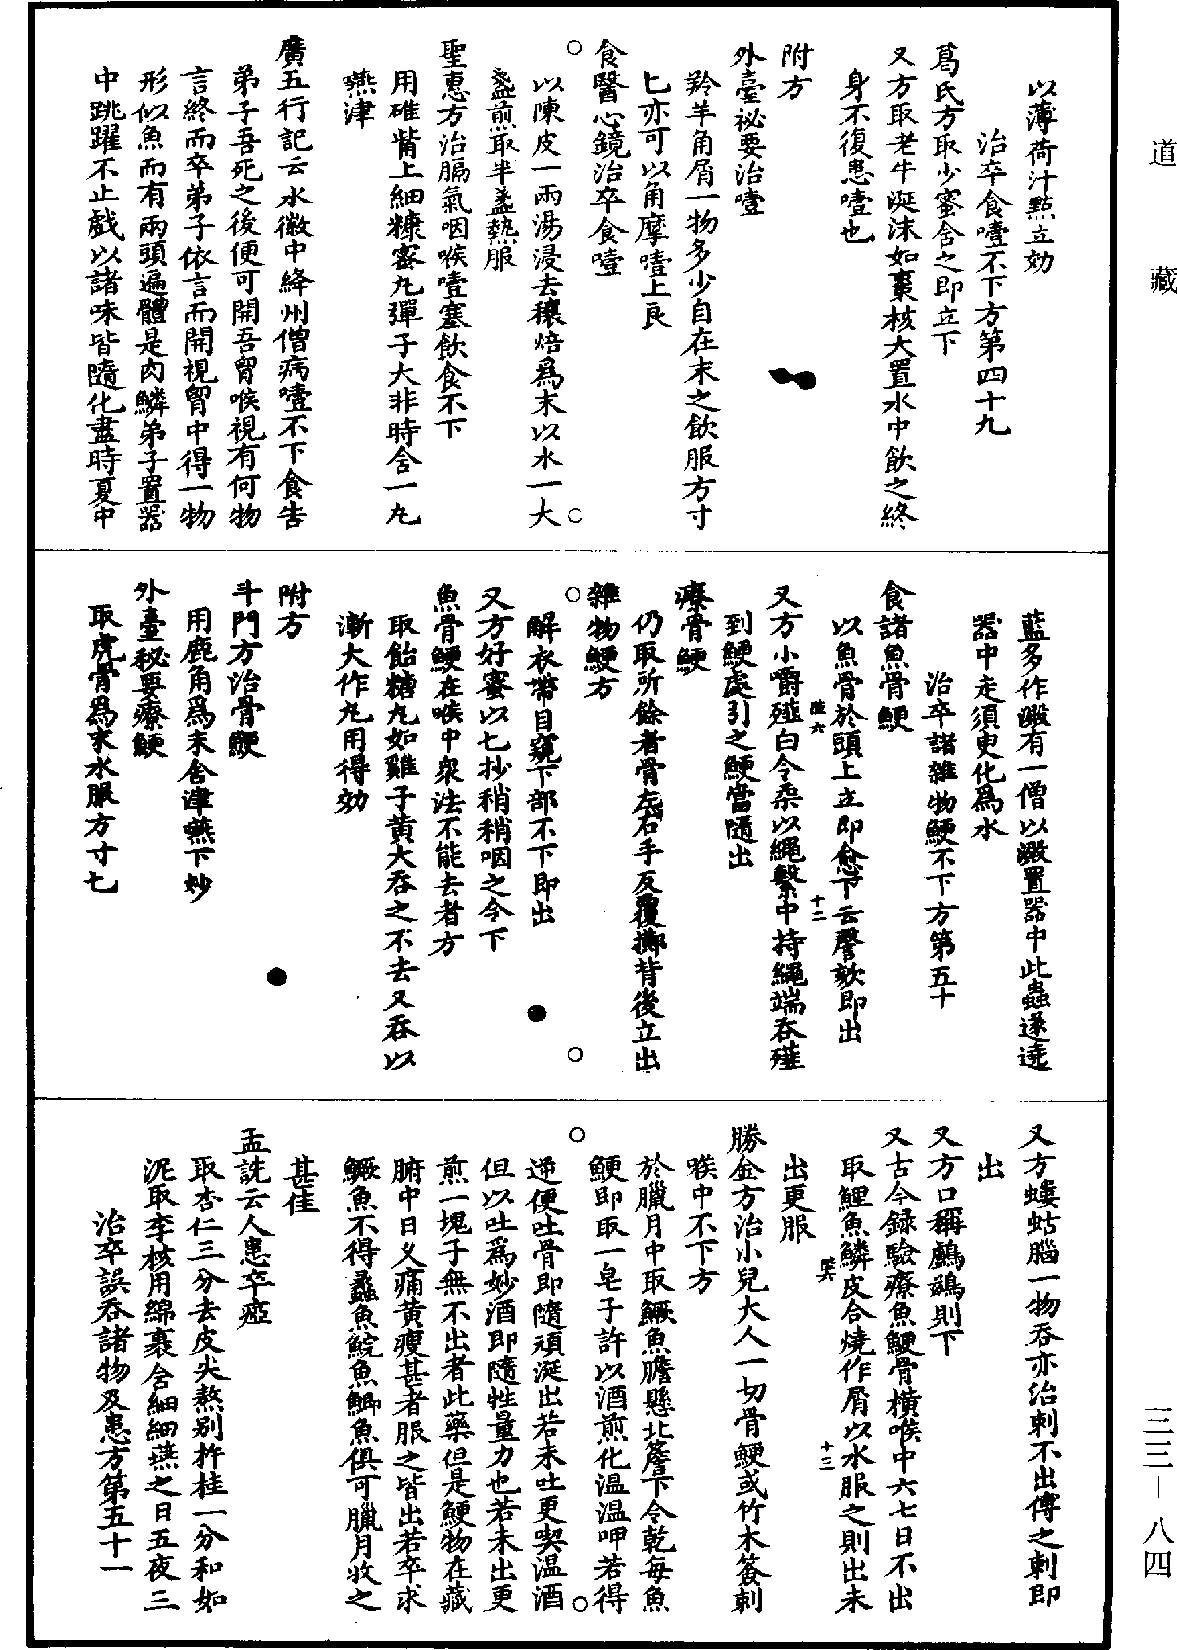 道藏
以薄荷汁點立効
治卒食噎不下方第四十九
葛氏方取少蜜含之即立下
又方取老牛涎沫如棗核大置水中飲之終
身不復患噎也
附方
外臺祕要治噎
羚羊角屑一物多少自在末之飲服方寸
匕亦可以角摩噎上良
食醫心鏡治卒食噎
以陳皮一兩湯浸去穰焙爲末以水一大
盞煎取半盞熱服
聖惠方治膈氣咽喉噎塞飲食不下
用碓觜上細糠蜜丸彈子大非時含一丸
嚥津
廣五行記云永徽中絳州僧病噎不下食告
弟子吾死之後便可開吾胷喉視有何物
言終而卒弟子依言而開視胷中得一物
形似魚而有兩頭遍體是肉鱗弟子置器
中跳躍不止戲以諸味皆隨化盡時夏中
藍多作澱有一僧以澱置器中此蟲遂遶
器中走須臾化爲水
治卒諸雜物鯁不下方第五十
食諸魚骨鯁
以魚骨於頭上立即愈下云謦欬即出
陸六
十二
又方小嚼薤白令柔以繩繫中持繩端吞薤
到鯁處引之鯁當隨出
療骨鯁
仍取所餘者骨左右手反覆擲背後立出
雜物鯁方
解衣帶目窺下部不下即出
又方好蜜以匕抄稍稍咽之令下
魚骨鯁在喉中衆法不能去者方
取飴糖丸如雞子黄大吞之不去又吞以
漸大作丸用得効
附方
斗門方治骨鯁
用鹿角爲末含津嚥下妙
外臺秘要療鯁
取虎骨爲末水服方寸匕
又方螻蛄腦一物吞亦治刺不出傅之刺即
出
又方口稱鸕鷀則下
又古今録驗療魚鯁骨横喉中六七日不出
取鯉魚鱗皮合燒作屑以水服之則出未
十三
出更服
勝金方治小兒大人一切骨鯁或竹木簽刺
喉中不下方
於臘月中取鱖魚膽懸北簷下令乾每魚
鯁即取一皂子許以酒煎化温温呷若得
逆便吐骨即隨頑涎出若未吐更喫温酒
但以吐爲妙酒即隨性量力也若未出更
煎一塊子無不出者此藥但是鯁物在藏
腑中日乂痛黄瘦甚者服之皆出若卒求
鱖魚不得蠡魚鯇魚鯽魚俱可臘月收之
甚佳
孟詵云人患卒瘂
取杏仁三分去皮尖熬别杵桂一分和如
泥取李核用綿裹含細細嚥之日五夜三
治卒誤吞諸物及患方第五十一
三三—八四